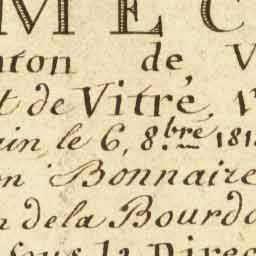 MEC
nton de V
t de Vitré
in le 6, 8.bre 181
on Bonnaire
n dela Bourdo
sous la Direc